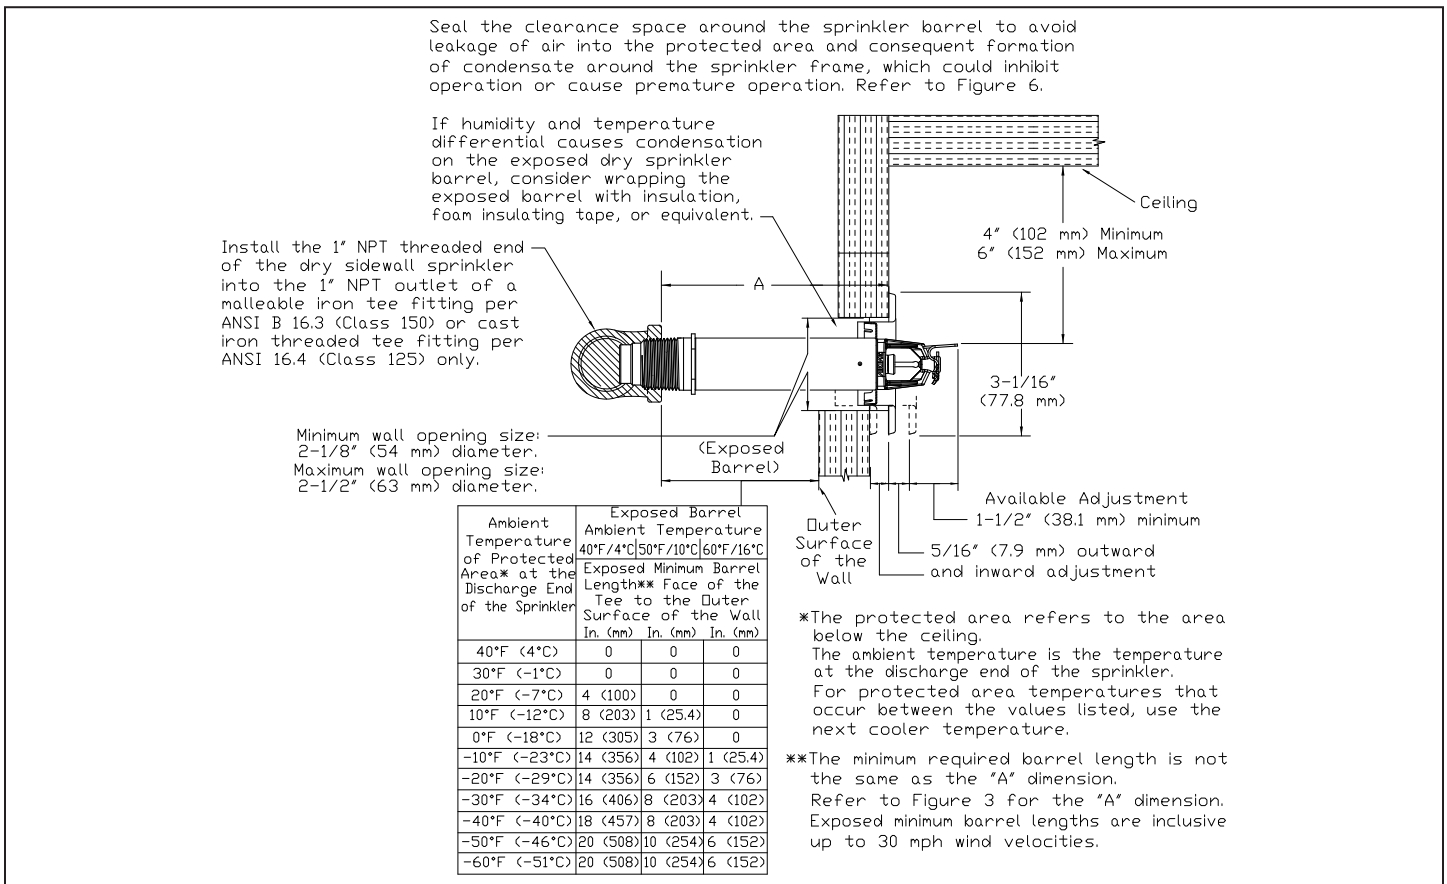 Seal the clearance space around the sprinkler barrel to avoid
leakage of air into the protected area and consequent formation
of condensate around the sprinkler frame, which could inhibit
operation or cause premature operation. Refer to Figure 6.
If humidity and temperature
differential causes condensation
on the exposed dry sprinkler
barrel, consider wrapping the
exposed barrel with insulation,
foam insulating tape, or equivalent.
Ceiling
4" (102 mm) Minimum
6" (152 mm) Maximum
Install the 1" NPT threaded end
of the dry sidewall sprinkler
into the 1" NPT outlet of a
malleable iron tee fitting per
ANSI B 16.3 (Class 150) or cast
iron threaded tee fitting per
ANSI 16.4 (Class 125) only.
A
3-1/16"
(77.8 mm)
Minimum wall opening size:
2-1/8" (54 mm) diameter.
Maximum wall opening size:
2-1/2" (63 mm) diameter.
(Exposed
Barrel)
Outer
Surface
of the
Wall
Available Adjustment
1-1/2" (38.1 mm) minimum
5/16" (7.9 mm) outward
and inward adjustment
Ambient
Temperature
of Protected
Area* at the
Discharge End
of the Sprinkler
Exposed Barrel
Ambient Temperature
40°F/4°C 50°F/10°C 60°F/16°C
Exposed Minimum Barrel
Length** Face of the
Tee to the Outer
Surface of the Wall
In. (mm) In. (mm) In. (mm)
40°F (4°C) 0 0 0
30°F (-1°C) 0 0 0
20°F (-7°C) 4 (100) 0 0
10°F (-12°C) 8 (203) 1 (25.4) 0
0°F (-18°C) 12 (305) 3 (76) 0
-10°F (-23°C) 14 (356) 4 (102) 1 (25.4)
-20°F (-29°C) 14 (356) 6 (152) 3 (76)
-30°F (-34°C) 16 (406) 8 (203) 4 (102)
-40°F (-40°C) 18 (457) 8 (203) 4 (102)
-50°F (-46°C) 20 (508) 10 (254) 6 (152)
-60°F (-51°C) 20 (508) 10 (254) 6 (152)
*The protected area refers to the area
below the ceiling.
The ambient temperature is the temperature
at the discharge end of the sprinkler.
For protected area temperatures that
occur between the values listed, use the
next cooler temperature.
**The minimum required barrel length is not
the same as the "A" dimension.
Refer to Figure 3 for the "A" dimension.
Exposed minimum barrel lengths are inclusive
up to 30 mph wind velocities.